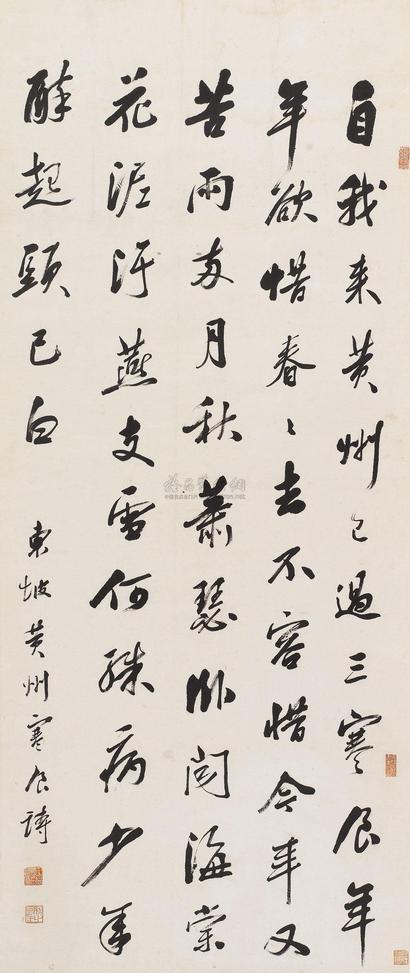 自我来黄州已過三寒食年
年欲惜春々去不容惜今年又
苦雨两月秋蕭瑟卧闻海棠
花泥汙燕支雪何殊病少年
醉起頭已白
東坡黄州寒食詩